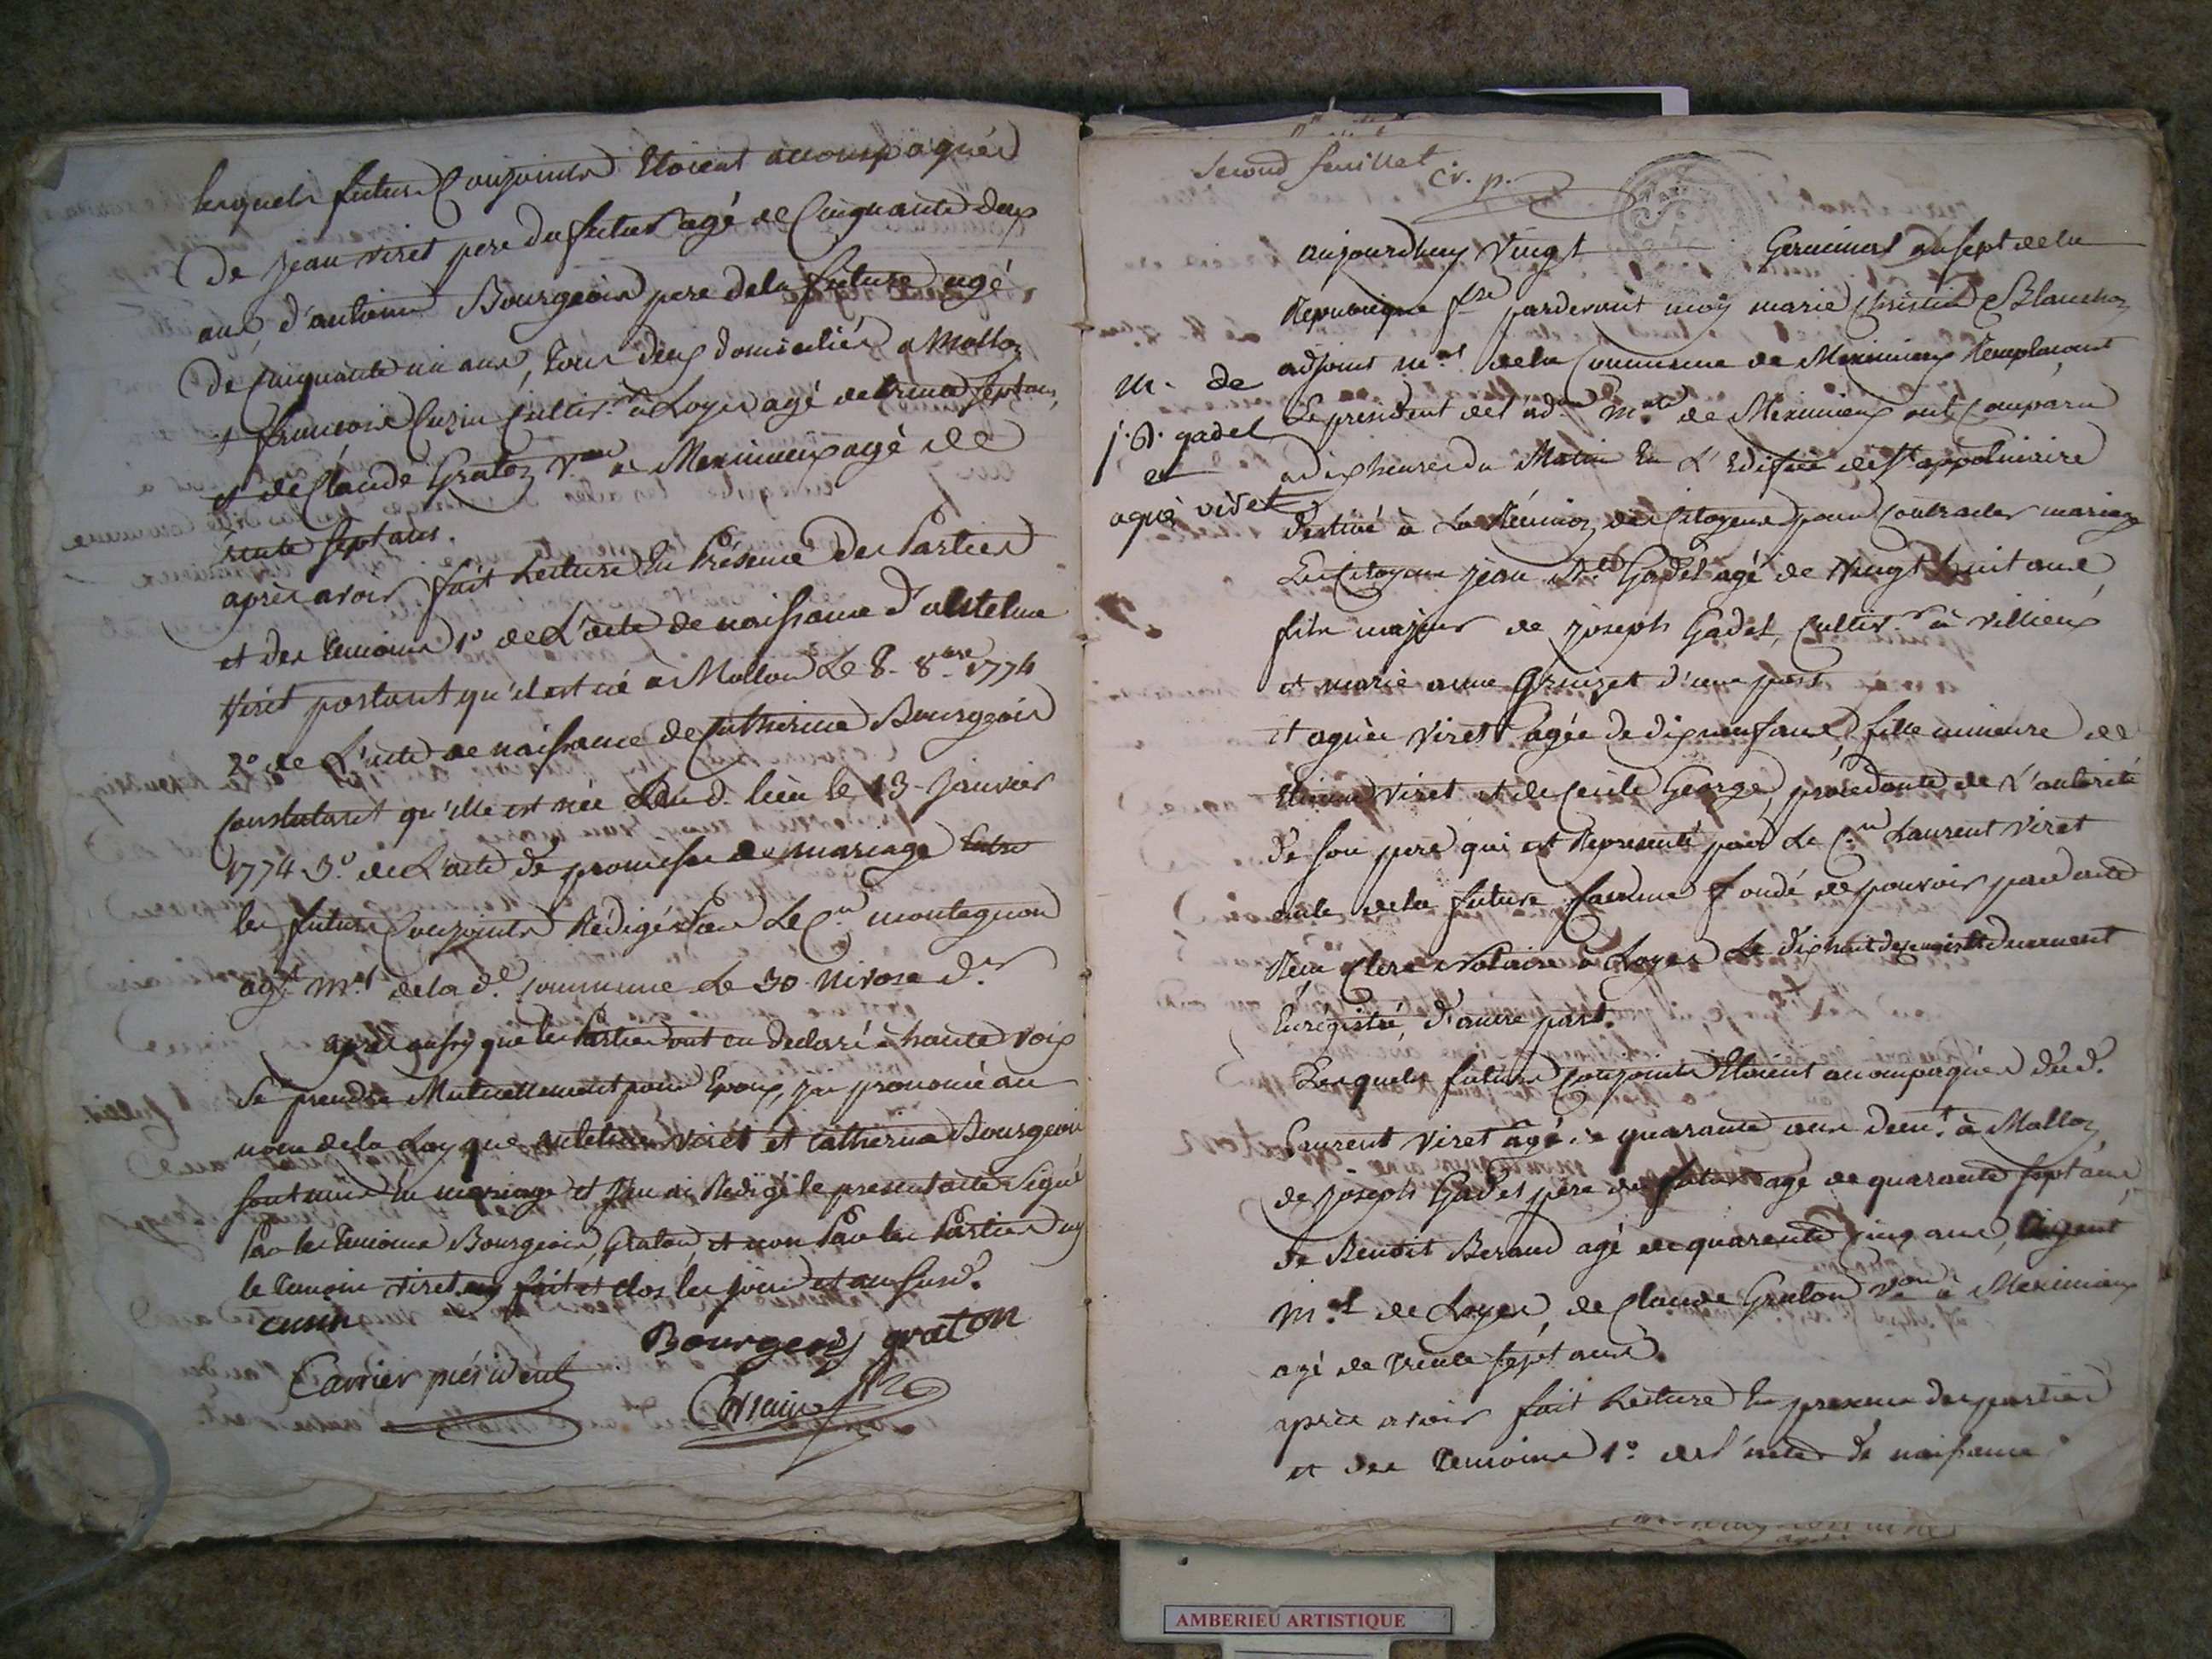 lesquels futurs Conjoints Etoient accompagnés
de jean viret pere du futur agé de Cinquante deux
ans, d'antoine Bourgeois pere de la future agé
de Cinquante un ans, tous deux domiciliés a Mollon
et francois Cuzin Cultiv.r a Loyes agé de trente sept ans,
et de Claude Graton v.. a Meximieux agé de
trente sept ans.
après avoir fait Lecture En Présence des Parties
et des temoins 1° de L'acte de naissance d'antelme
Viret portant qu'il est né a Mollon Le 8. 8bre 1774
2° de L'acte de naissance de Catherine Bourgeois
Constatant qu'elle est née aud. lieu le 13 Janvier
1774 3° de L'acte de promesse de mariage Entre
les futurs Conjoints Rédigé Par Le C.n montagnon
agt. m.al de la d.e Commune Le 30 Nivose d.r
après aussy que les Parties ont eu declaré a haute voix
se prendre Mutuellement pour Epoux, j'ai prononcé au
nom de la Loy que antelme viret et Catherine Bourgeois
sont unis En mariage et j'en ai Redigé le present acte Signé
Par les temoins Bourgeois, Graton, et non Par les Parties ny
le temoin viret, fait et clos les jour et an susd.
cuzin
Bourgeois graton
Carrier président
Second feuillet
Cr. p.
aujourdhuy Vingt Germinal an sept de la
Republique f.se pardevant moy marie Christin Blanchon
adjoint m.al de la Commune de Meximieux Remplacant
Le president de l'ad.on m.ale de Meximieux ont Comparu
a dix heures du Matin En L'Edifice de St appolinaire
destiné à La Réunion des Citoyens pour Contracter mariage
m. de
j. B. gadet
et
agnè viret
Les Citoyens jean B.te Gadet agé de Vingt huit ans,
fils majeur de joseph Gadet, Cultiv.r a villieux
et marie anne Grinzet d'une part
et agnès viret agée de dix neuf ans, fille mineure de
Etienne Viret et de Cecile George, procedante de L'autorité
de son pere qui est Representé par Le C.n Laurent Viret
oncle de la future fondé de pouvoir par acte
Reçu Clerc Notaire a Loyes Le dix huit de ce mois duement
Enrégistré, d'autre part.
Lesquels futurs Conjoints Etoient accompagnés dud.
Laurent viret agé de quarante ans dem.t à Mollon,
de joseph Gadet père du futur agé de quarante sept ans,
de Benoit Beraud agé de quarante cinq ans, agent
m.al de Loyes, de Claude Graton a Meximieux
agé de trente sept ans.
après avoir fait Lecture En presence des parties
et des temoins 1° de l'acte de naissance
AMBERIEU ARTISTIQUE